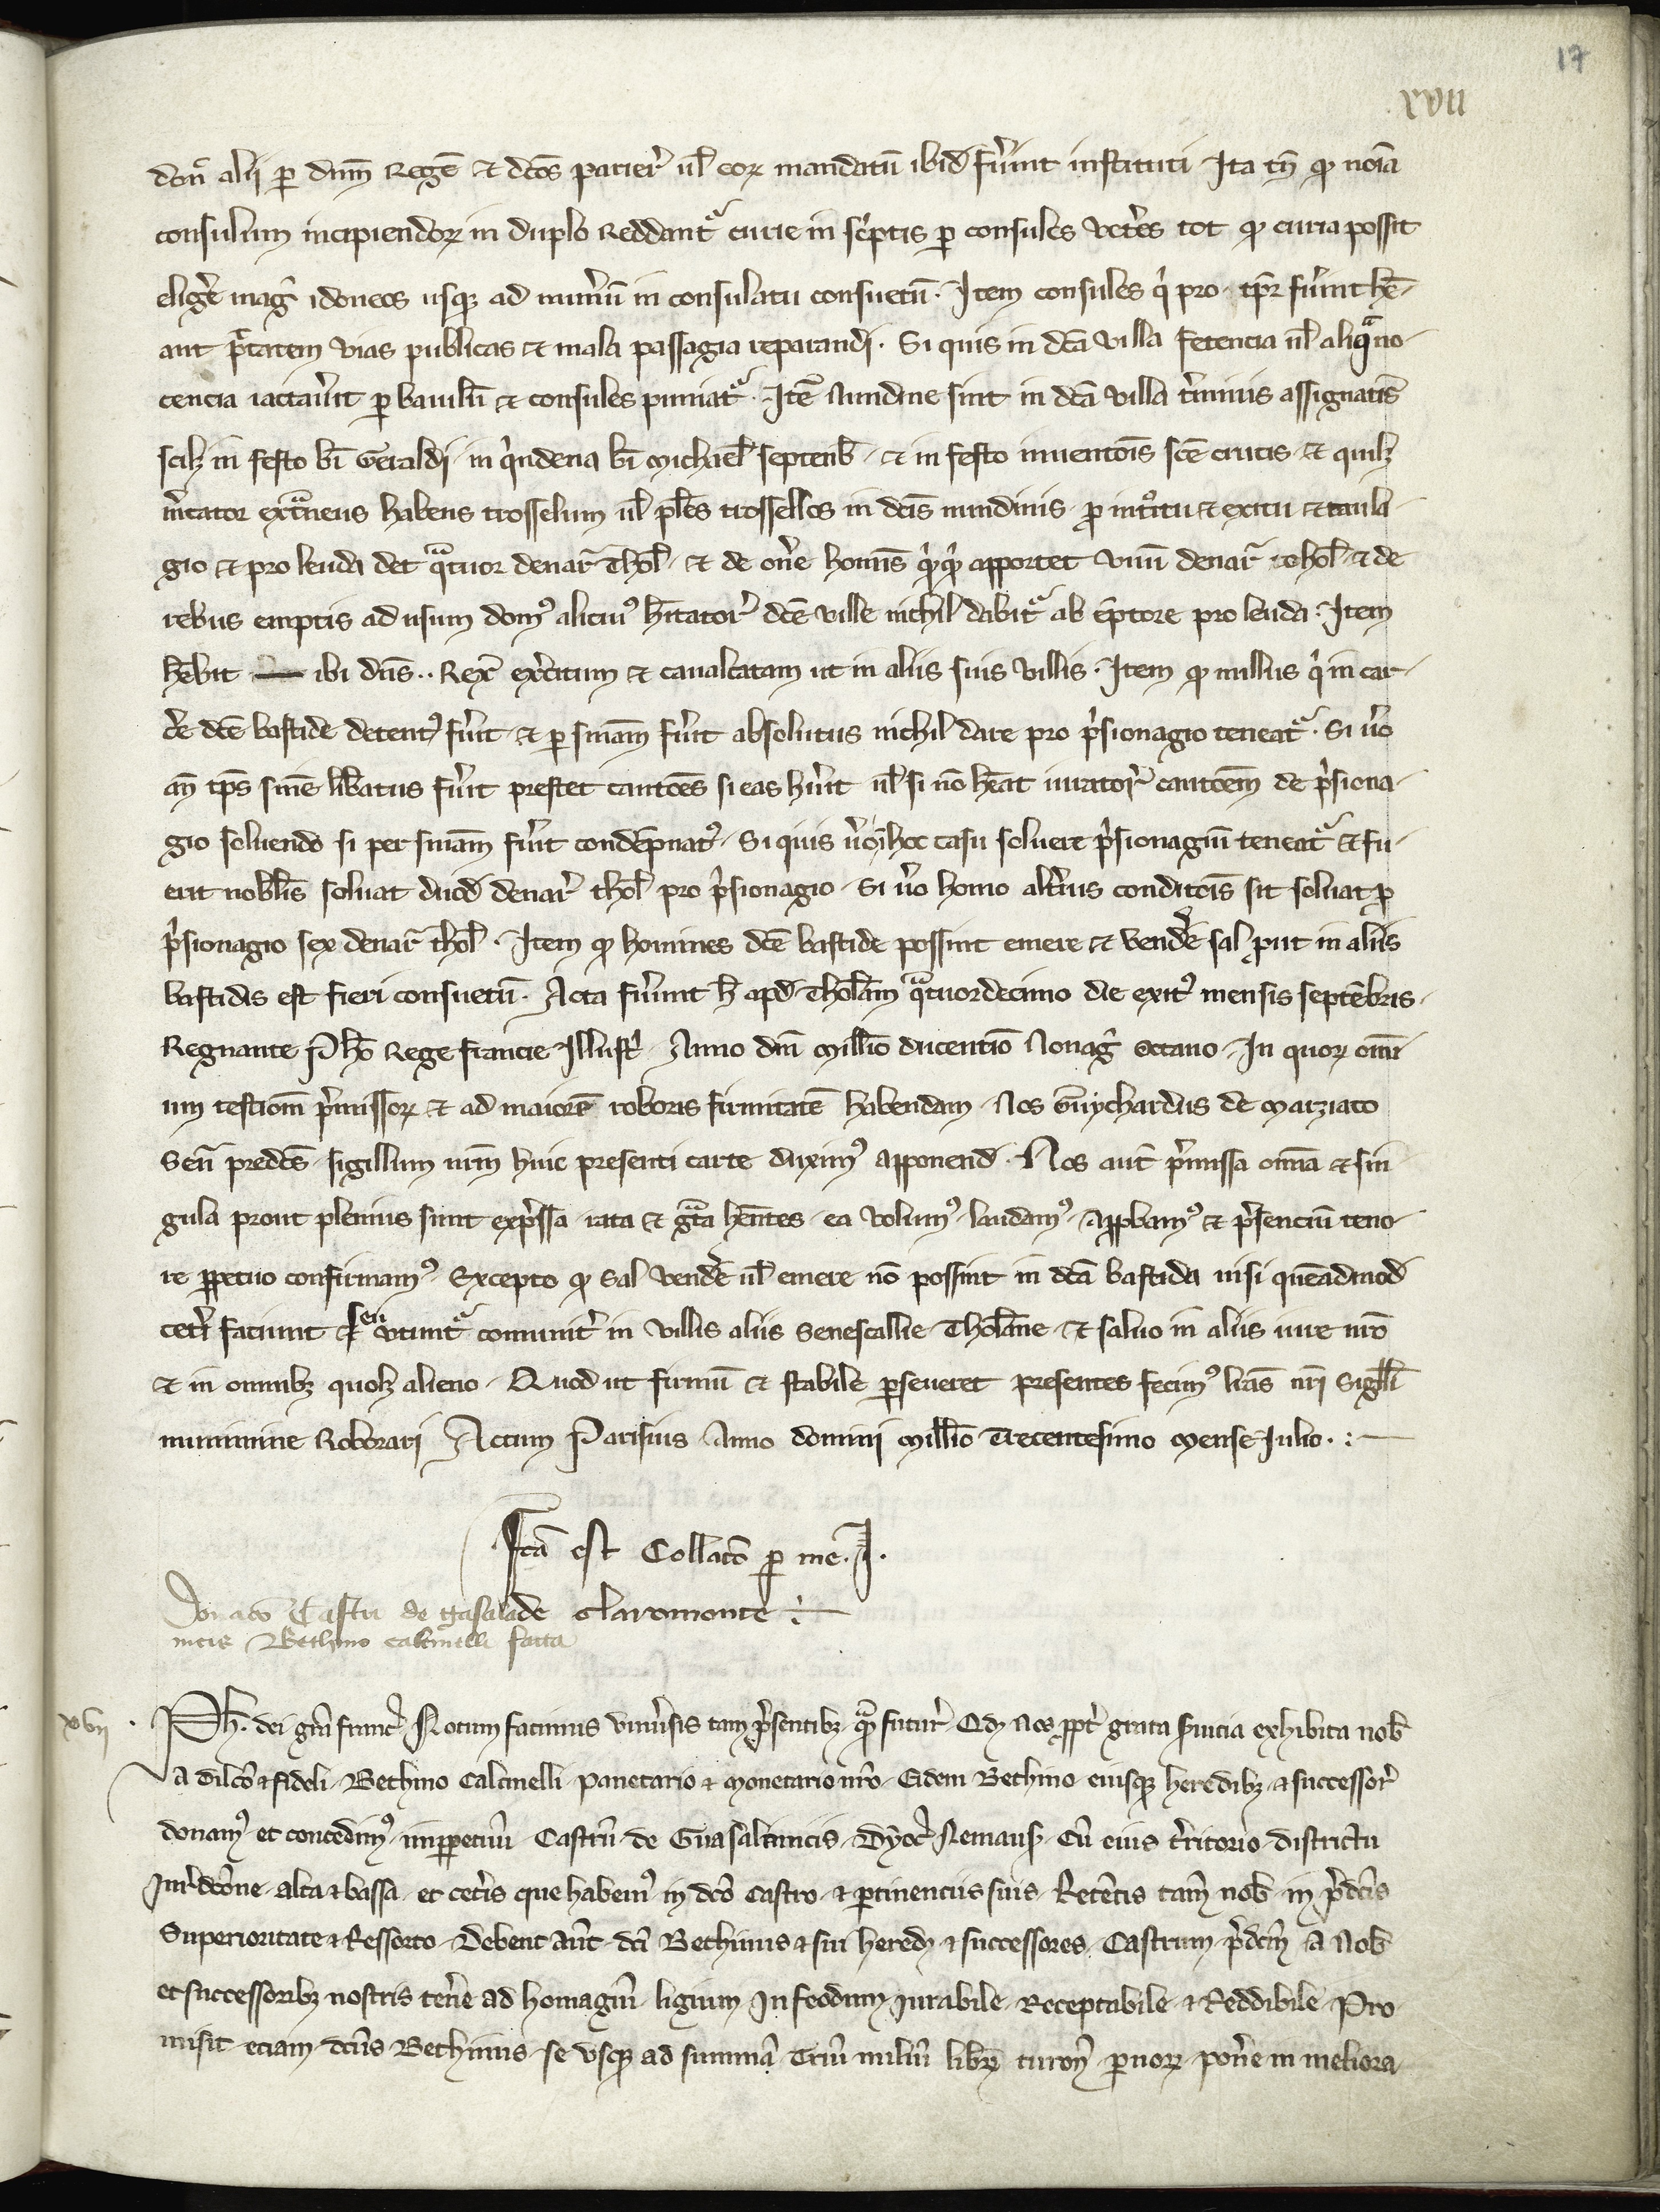 17
xvii
donec alii per dnm Regē et dcōs parier ul eor mandatū ibid fuerint instituti. Ita tn̄ qđ noīa
consulum incipiendor in duplo reddant curie in scriptis per consules veteres tot qđ curia possit
eligere mag idoneos usqz ad numerū in consulatu consuetū. Item consules q̄ pro tpr fuerint hē-
ant ptatem vias publicas et mala passagia reparandi. Si quis in dcā villa fetencia ul aliqua no-
cencia iactaverit per baiulū et consules puniat. Itē nundine sint in dcā villa terminis assignatis
scilz in festo bī Geraldi, in quindena bī michael septenb, et in festo inventoīs scē crucis, et quilz
mercator extraneus habens trosselum ul plēs trossellos in dcis nundinis, pro introitu et exitu et taula-
gio et pro leuda det quatuor denar Thol. et de onere homīs quod apportet unū denar thol. et de
rebus emptis ad usum dom' alicui' hītator dcē ville nichil dabit ab ēptore pro leuda. Item
hēbit ibi dns.. Rex exercitum et cavalcatam ut in aliis suis villis. Item qđ nullus q̄ in car-
cere dcē bastide detent' fuerit, et per sniam fuerit absolutus nichil dare pro prisionagio teneat. Si vero
an̄ tps snīe liberatus fuerit prestet cautōes si eas huerit ul si nō hēat iurator cautōem de prisiona-
gio solvendo si per sniam fuerit condēpnat'. Si quis vero in hoc casu solvere prisionagiū teneat et fu-
erit nobilis solvat duod denar thol pro prisionagio. Si vero homo alterius conditōis sit solvat pro
prisionagio sex denar thol. Item qđ homines dcē bastide possint emere et vendere sal put in aliis
bastidis est fieri consuetū. Acta fuerunt h apd Tholam quatuordecimo die exit' mensis septēbris.
Regnante Phō Rege francie Illustr. Anno dnī millīo ducentīo Nonag octavo. In quor omī
um testīom premissor et ad maiorē roboris firmitatē habendam. Nos Guychardus de marziaco
Sen predcs sigillum nrm huic presenti carte duxim' apponend. Nos aut premissa omīa et sin
gula prout plenius sunt expressa rata et grata hentes, ea volum' laudam' appbam' et presenciū teno
re ppetuo confirmam'. Excepto qđ sal vendere ul emere nō possint in dcā bastida nisi quēadmod
ceteri faciunt seu utunt comunit in villis aliis Senescallie Tholane. Et salvo in aliis iure nro
et in omnibz quolz alieno. Quod ut firmū et stabile perseveret presentes fecim' lrās nrī Sigilli
munimine Roborari. Actum Parisius Anno domini millīo Trecentesimo mense Iulio. :-
Fctā est Collatō per me. J.
de claromonte :-
Donatō Castri de gasala
nicis Bethino calcinelli facta
xvii
Ph. dei gra franc Rex. Notum facimus universis tam presentibz quam futur. Qđ Nos ppt grata servicia exhibita nob
a dilcō et fideli Bethino Calcinelli panetario et monetario nro. Eidem Bethino eiusqz heredibz et successor
donam' et concedim' imppetuū Castrū de Guasalanicis Dyoc Nemaus. Cū eius territorio districtu
Iurisdcōne alta et bassa et ceteris que habem' in dcō Castro et pertinenciis suis. Retentis tam nob in predcis
Superioritate et Ressorto. Debent aut dcī Bethinus et sui hered et successores Castrum predcm a Nob
et successoribz nostris tenere ad homagiū ligium In feodum iurabile Receptabile et Reddibile. Pro
misit eciam dcus Bethinus se usqz ad summā Triū miliū libr turon pvor ponere in meliora-